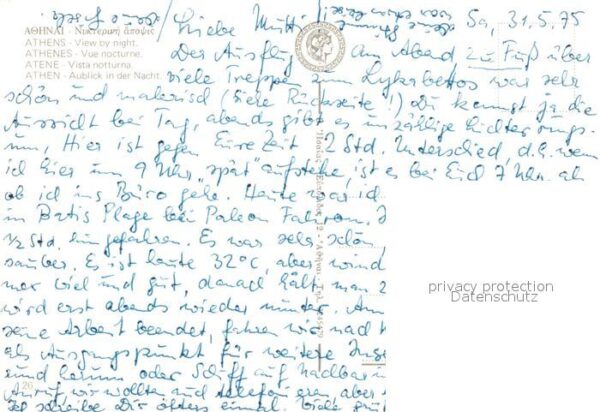 ΑΘΗΝΑΙ - Νυκτερινή άποψις
ATHENS - View by night.
ATHENES - Vue nocturne.
ATENE - Vista notturna.
ATHEN - Aublick in der Nacht.
Sa, 31.5.75
Liebe Mutti
Der Ausflug am Abend zu Fuß über
viele Treppen zum Lykabettos war sehr
schön und malerisch (siehe Rückseite!) Du kennst ja die
Aussicht bei Tag, abends gibt es unzählige Lichter rings-
um, Hier ist gegen Eure Zeit 2 Std. Unterschied, d.h. wenn
ich hier um 9 Uhr "spät" aufstehe, ist es bei Euch 7 Uhr. als
ob ich ins Büro gehe. Heute war ich
in Batis Plage bei Paleon Faliron.
1/2 Std. hingefahren. Es war sehr schön,
sauber. Es ist heute 32°C, aber wind
mer viel und gut, danach hält man
wird erst abends wieder munter.
seine Arbeit beendet, fahren wir nach
als Ausgangspunkt für weitere
und herum oder Schiff auf
Anruf, wir wollten und telefon aber
Ich schreibe Dir öfters einmal. Viele
26
privacy protection
Datenschutz